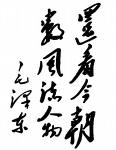 還看今朝
數風流人物
毛澤東